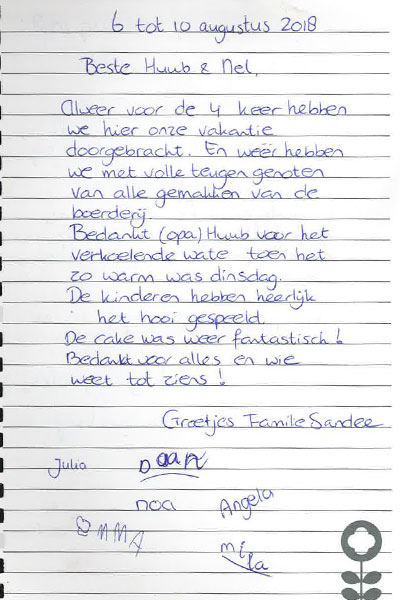 6 tot 10 augustus 2018
Beste Huub & Nel,
Alweer voor de 4 keer hebben
we hier onze vakantie
doorgebracht. En weer hebben
we met volle teugen genoten
van alle gemakken van de
boerderij.
Bedankt (opa) Huub voor het
verkoelende wate toen het
zo warm was dinsdag.
De kinderen hebben heerlijk
het hooi gespeeld.
De cake was weer fantastisch!
Bedankt voor alles en wie
weet tot ziens!
Groetjes Familie Sandee
Julia Daan
noa Angela
EMMA mila